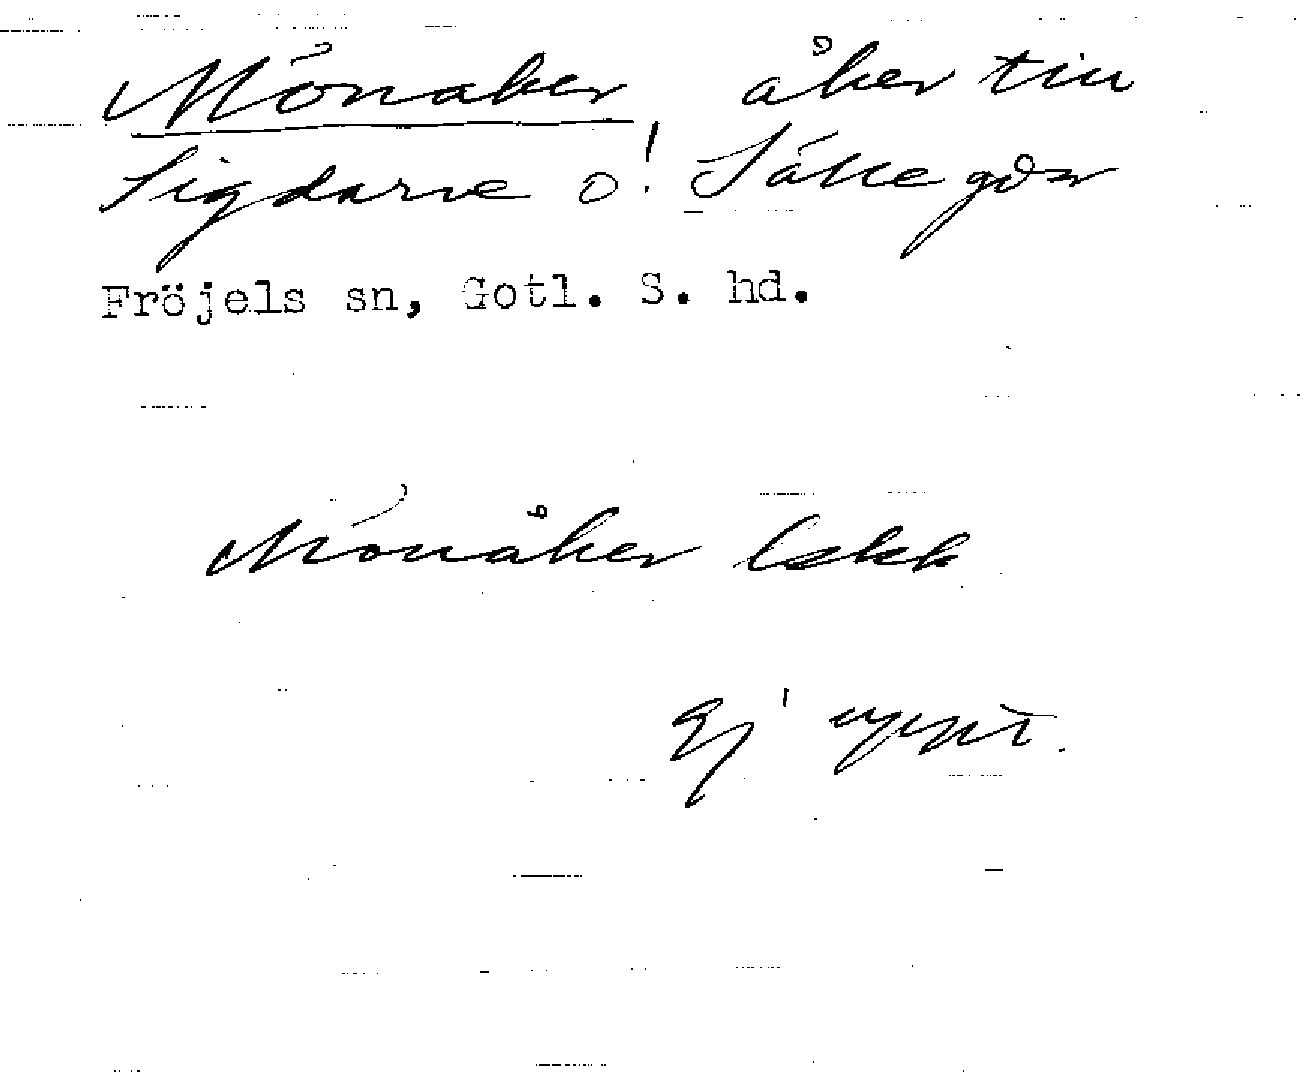 Mönaker åker till
Sigdarve o! Sälle gdr
Fröjels sn, Gotl. S. hd.
Mönåker Lskk
Ej uppt.